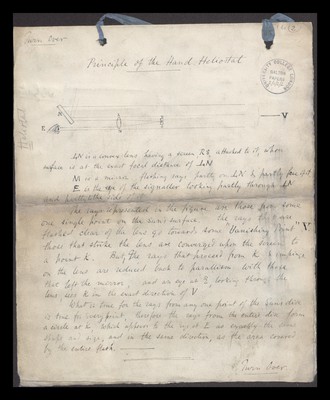 Turn Over
Principle of the Hand Heliostat
Heliostat
E
V
LN is a convex lens facing a screen RS, attached to it, whose
surface is at the exact focal distance of LN.
M is a mirror flashing rays partly on LN & partly free of it
E is the eye of the signaller looking partly through LN
and partly the side of it
The rays represented in the figure are those from some
one single point on the sun's surface. The rays that are
flashed clear of the lens go towards some "Vanishing point" V
those that strike the lens are converged upon the screen to
a point K. But, the rays that proceed from K & impinge
on the lens are reduced back to parallelism with those
that left the mirror, and an eye at E looking through the
lens, sees K in the exact direction of V.
What is true for the rays from any one point of the sun's disc
is true for every point, therefore the rays from the entire disc form
a at K which appears to the eye at E as exactly the same
shape and size, and in the same direction, as the area covered
by the entire flash.
Turn Over